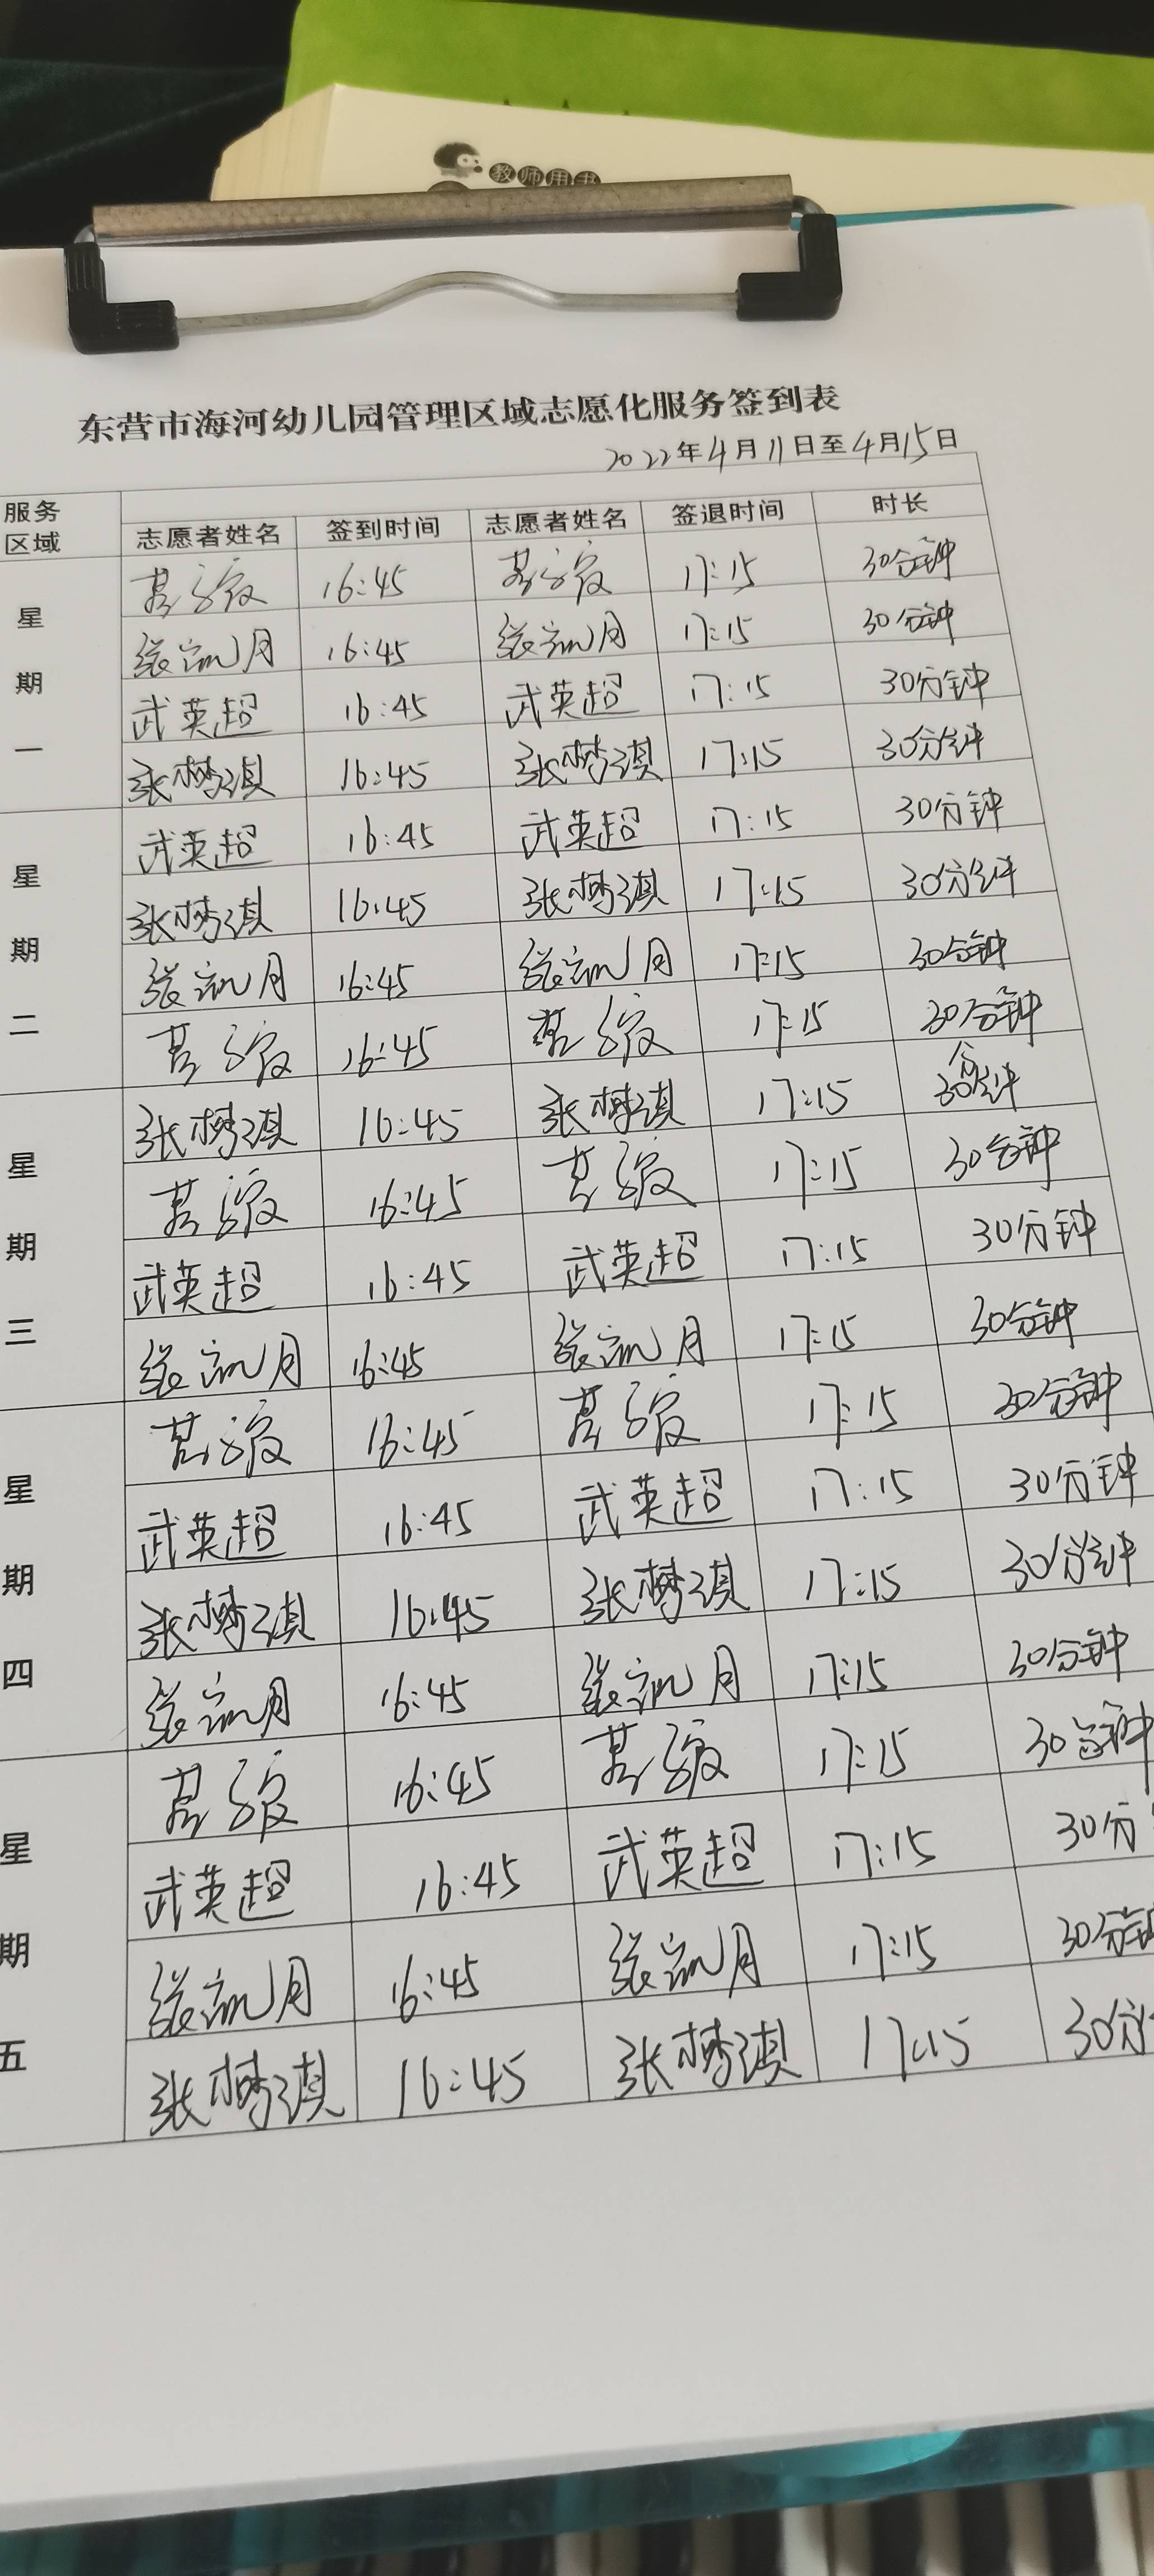 教师用书
东营市海河幼儿园管理区域志愿化服务签到表
2022年4月11日至4月15日
服务区域 志愿者姓名 签到时间 志愿者姓名 签退时间 时长
星期一
16:45 17:15 30分钟
张 月 16:45 张 月 17:15 30分钟
武英超 16:45 武英超 17:15 30分钟
张梦琪 16:45 张梦琪 17:15 30分钟
星期二
武英超 16:45 武英超 17:15 30分钟
张梦琪 16:45 张梦琪 17:15 30分钟
张 月 16:45 张 月 17:15 30分钟
16:45 17:15 30分钟
星期三
张梦琪 16:45 张梦琪 17:15 30分钟
16:45 17:15 30分钟
武英超 16:45 武英超 17:15 30分钟
张 月 16:45 张 月 17:15 30分钟
星期四
16:45 17:15 30分钟
武英超 16:45 武英超 17:15 30分钟
张梦琪 16:45 张梦琪 17:15 30分钟
张 月 16:45 张 月 17:15 30分钟
星期五
16:45 17:15 30分钟
武英超 16:45 武英超 17:15 30分
张 月 16:45 张 月 17:15 30分钟
张梦琪 16:45 张梦琪 17:15 30分